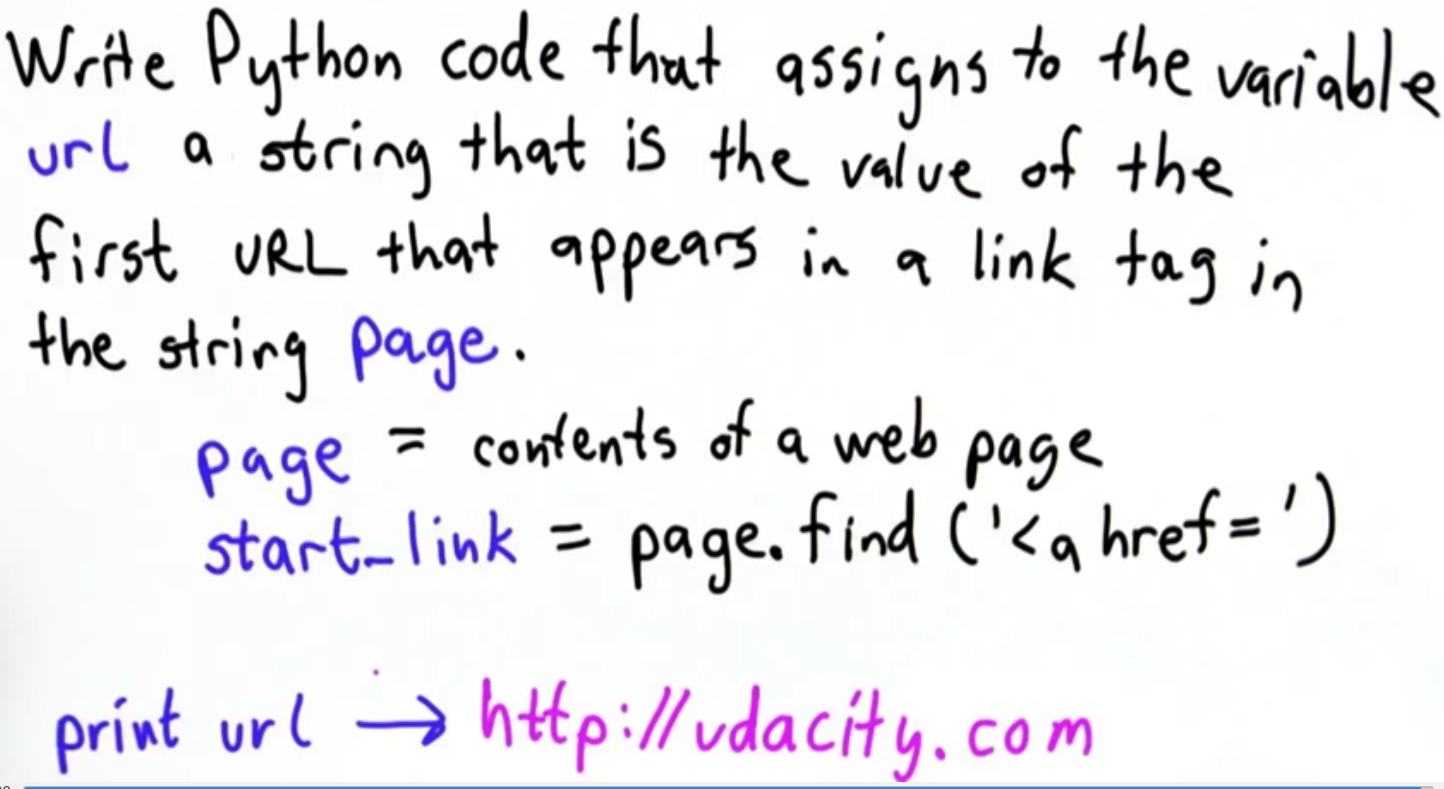 Write Python code that assigns to the variable
url a string that is the value of the
first URL that appears in a link tag in
the string page.
page = contents of a web page
start_link = page.find ('<a href=')
print url → http://udacity.com